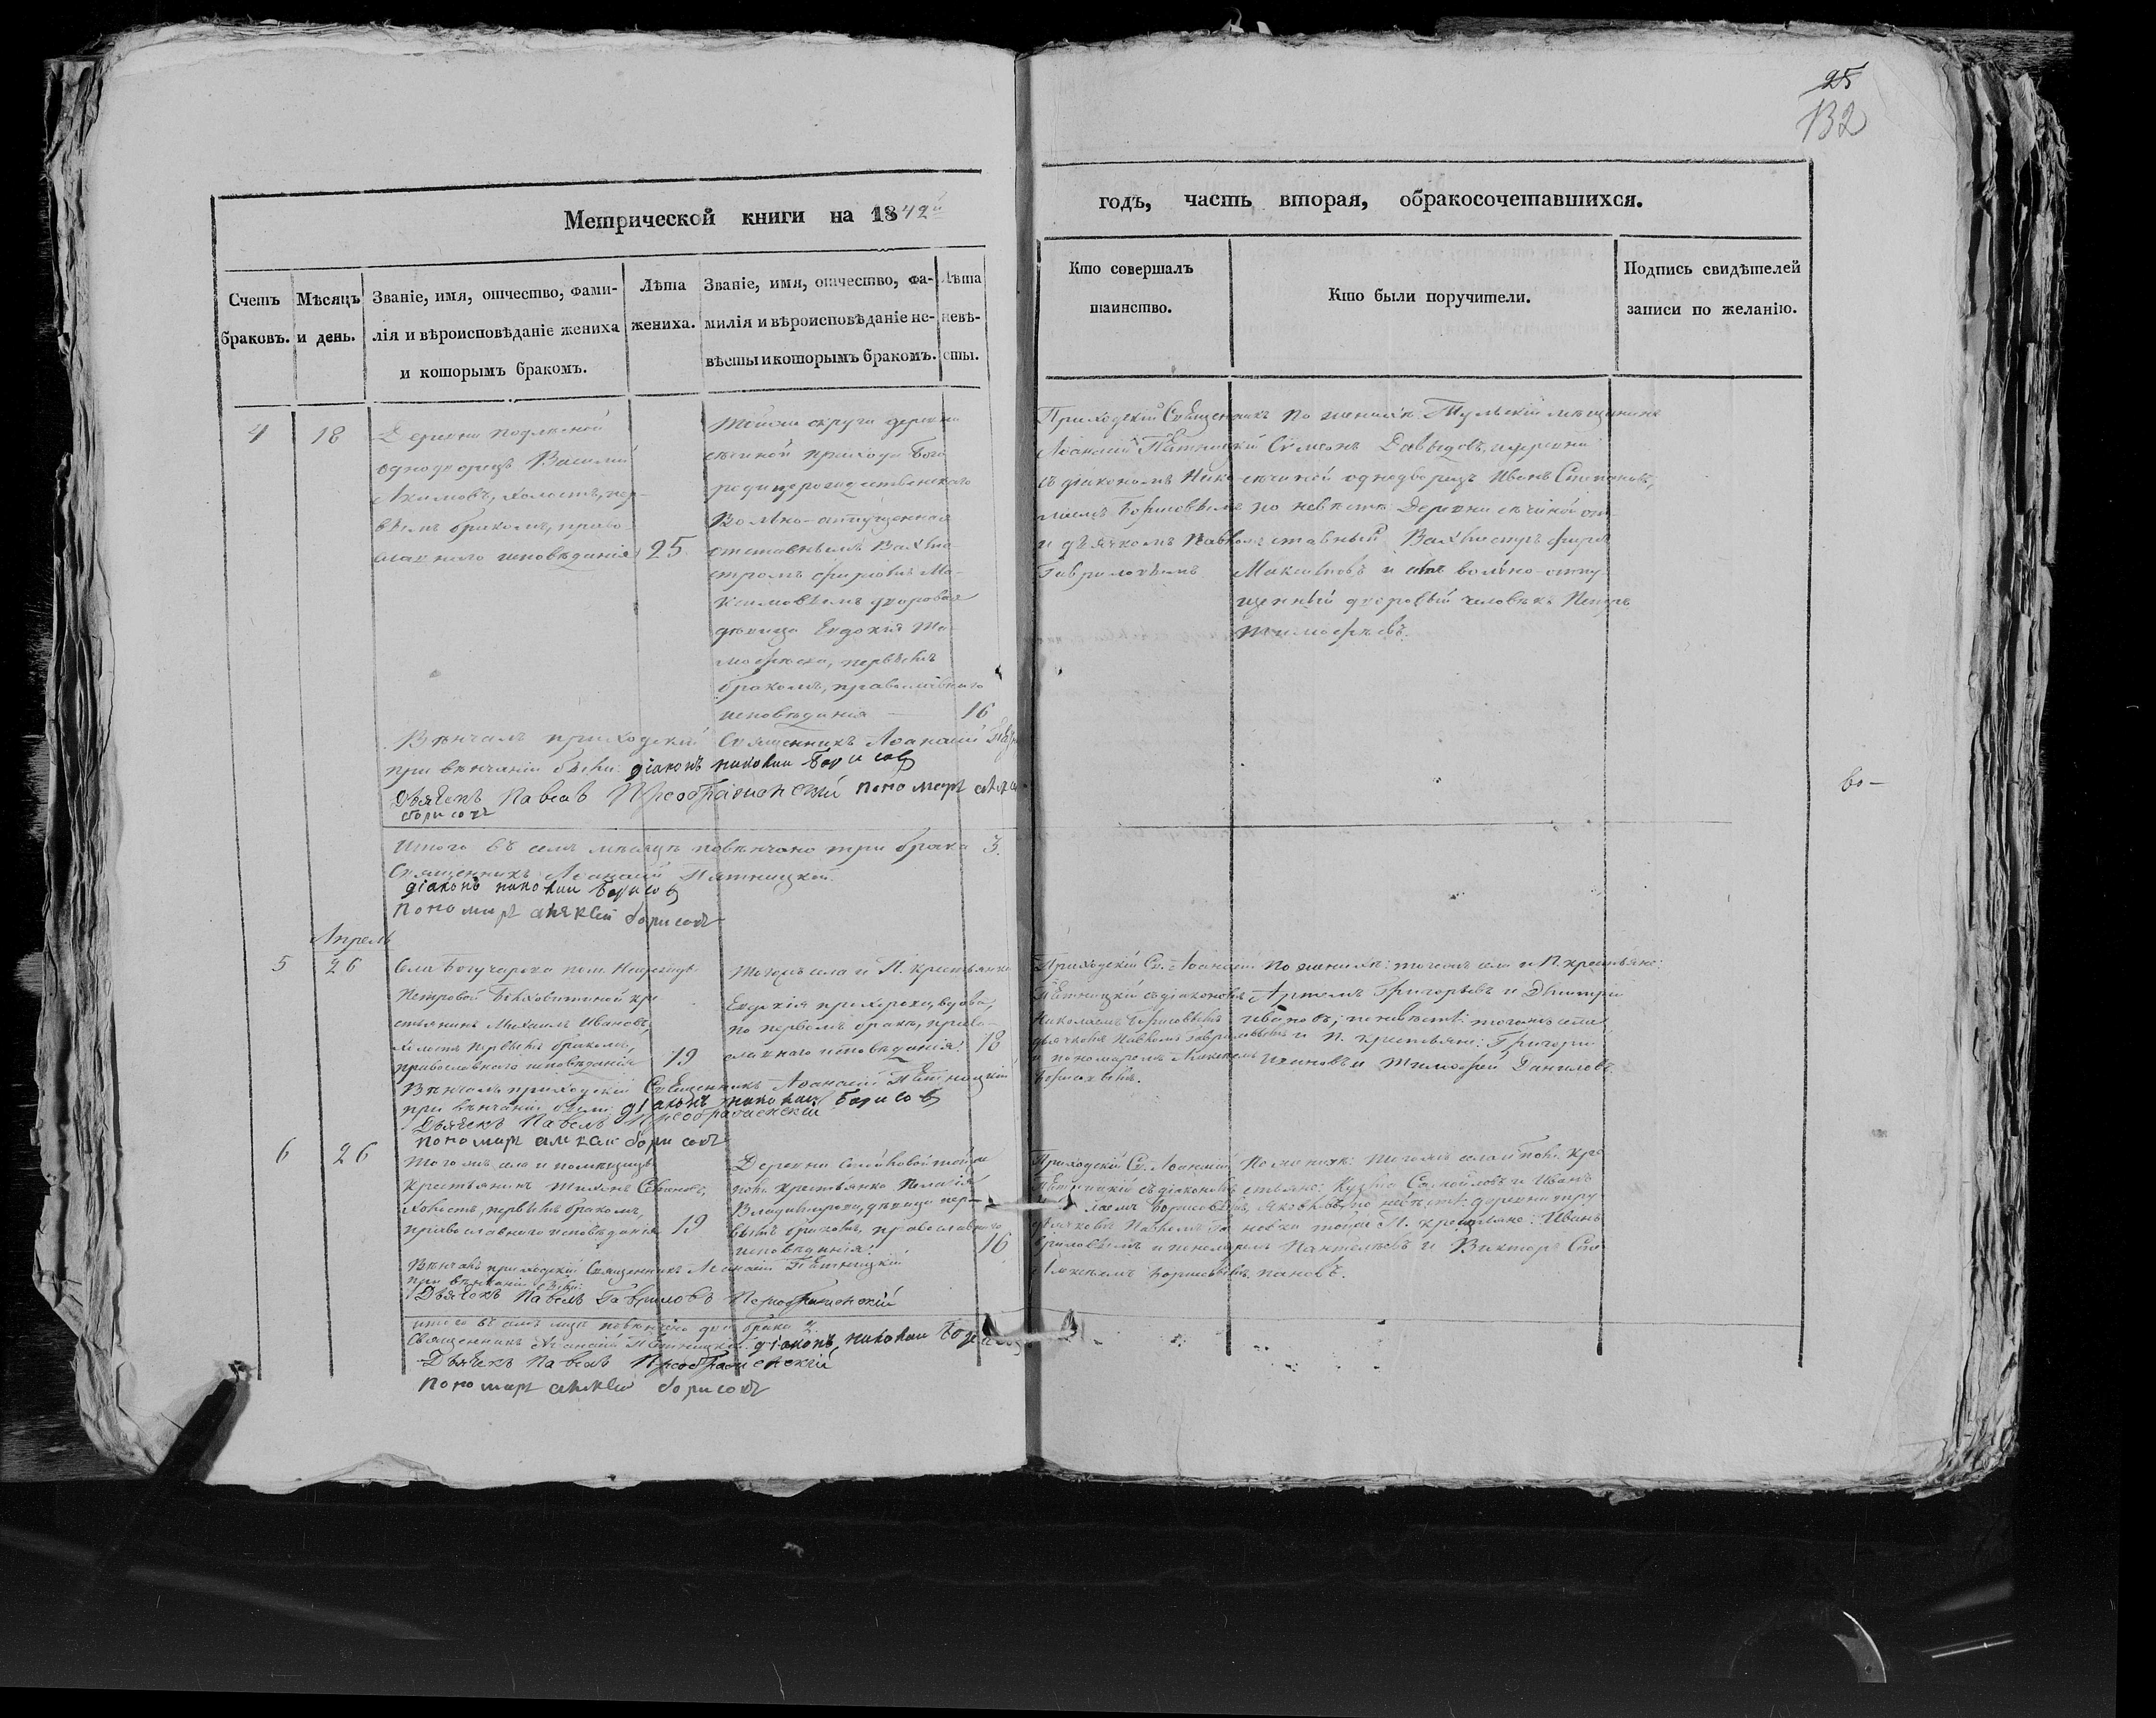 25
132
Метрической книги на 1842й
годъ, часть вторая, обракосочетавшихся.
Счетъ браковъ.
Мѣсяцъ и день.
Званіе, имя, отчество, фами-
лія и вѣроисповѣданіе жениха
и которымъ бракомъ.
Лѣта
жениха.
Званіе, имя, отчество, фа-
милія и вѣроисповѣданіе не-
вѣсты и которымъ бракомъ.
Лѣта
невѣ-
сты.
Кто совершалъ
таинство.
Кто были поручители.
Подпись свидѣтелей
записи по желанію.
4
18
Деревни
однодворецъ Василій
Акимовъ, холостъ, пер-
вымъ бракомъ, право-
славнаго исповѣданія
25
округи деревни
прихода Бого
родицерождественскаго
Вольно-отпущенная
отставнымъ Вахми-
стромъ Ма-
ксимовымъ дворовая
дѣвица Евдокія Ти-
мофеева, первымъ
бракомъ, православнаго
исповѣданія
16
Приходскій Священникъ
Аѳанасій Пятницкій
съ діакономъ Нико-
лаемъ Борисовымъ
и дьячкомъ Павломъ
Гавриловымъ
по женихѣ: Тульскій мѣщанинъ
Симеонъ Давыдовъ, и деревни
однодворецъ Иванъ Степановъ,
по невѣстѣ: Деревни от-
ставный Вахмистръ
Максимовъ и вольно-отпу-
щенный дворовый человѣкъ Петръ
Тимофеевъ.
Вѣнчалъ приходскій Священникъ Аѳанасій
при вѣнчаніи были: діаконъ николаи борисовъ
Дьячекъ Павелъ Преображенскій пономарь
борисовъ
во-
Итого въ семъ мѣсяцѣ повѣнчано три брака 3.
Священникъ Аѳанасій Пятницкой
діаконъ николаи борисовъ
пономарь алексѣй борисовъ
Апрель
5
26
Села Богучарова пом.
Петровой кре
стьянинъ Михаилъ Ивановъ,
холостъ первымъ бракомъ,
православнаго исповѣданія
19
Тогожъ села и П. крестьянка
Евдокія вдова,
по первомъ бракѣ, право-
славнаго исповѣданія.
18
Приходскій Св. Аѳанасій
Пятницкій съ діакономъ
Николаемъ Борисовымъ
дьячкомъ Павломъ Гавриловымъ
и пономаремъ Алексѣемъ
Борисовымъ.
по женихѣ: тогожъ села и П. крестьяне:
Артемъ Григорьевъ и Дмитрій
Ивановъ; по невѣстѣ: тогожъ села
и П. крестьяне: Григорій
Ивановъ и Тимофей Даниловъ.
Вѣнчалъ приходскій Священникъ Аѳанасій Пятницкій
при вѣнчаніи были: діаконъ николаи борисовъ
Дьячекъ Павелъ Преображенскій
пономарь алексѣи борисовъ
6
26
Тогожъ села и помѣщицы
крестьянинъ
холостъ, первымъ бракомъ,
православнаго исповѣданія
19
Деревни тойже
пом. крестьянка Пелагія
дѣвица пер-
вымъ бракомъ, православнаго
исповѣданія.
16
Приходскій Св. Аѳанасій
Пятницкій съ діакономъ
Николаемъ Борисовымъ,
дьячкомъ Павломъ Га
вриловымъ и пономаремъ
Алексѣемъ Борисовымъ.
По женихѣ: тогожъ села и пом. кре
стьяне: Кузьма Самойловъ и Иванъ
Яковлевъ, по невѣстѣ: деревни
тойже П. крестьяне: Иванъ
Пантелѣевъ и Викторъ Сте
пановъ.
Вѣнчалъ приходскій Священникъ Аѳанасій Пятницкій
при вѣнчаніи были
Дьячекъ Павелъ Гавриловъ Преображенскій
Итого въ семъ мѣсяцѣ повѣнчано два брака 2.
Священникъ Аѳанасій Пятницкій діаконъ, николаи борисовъ
Дьячекъ Павелъ Преображенскій
пономарь алексѣй борисовъ